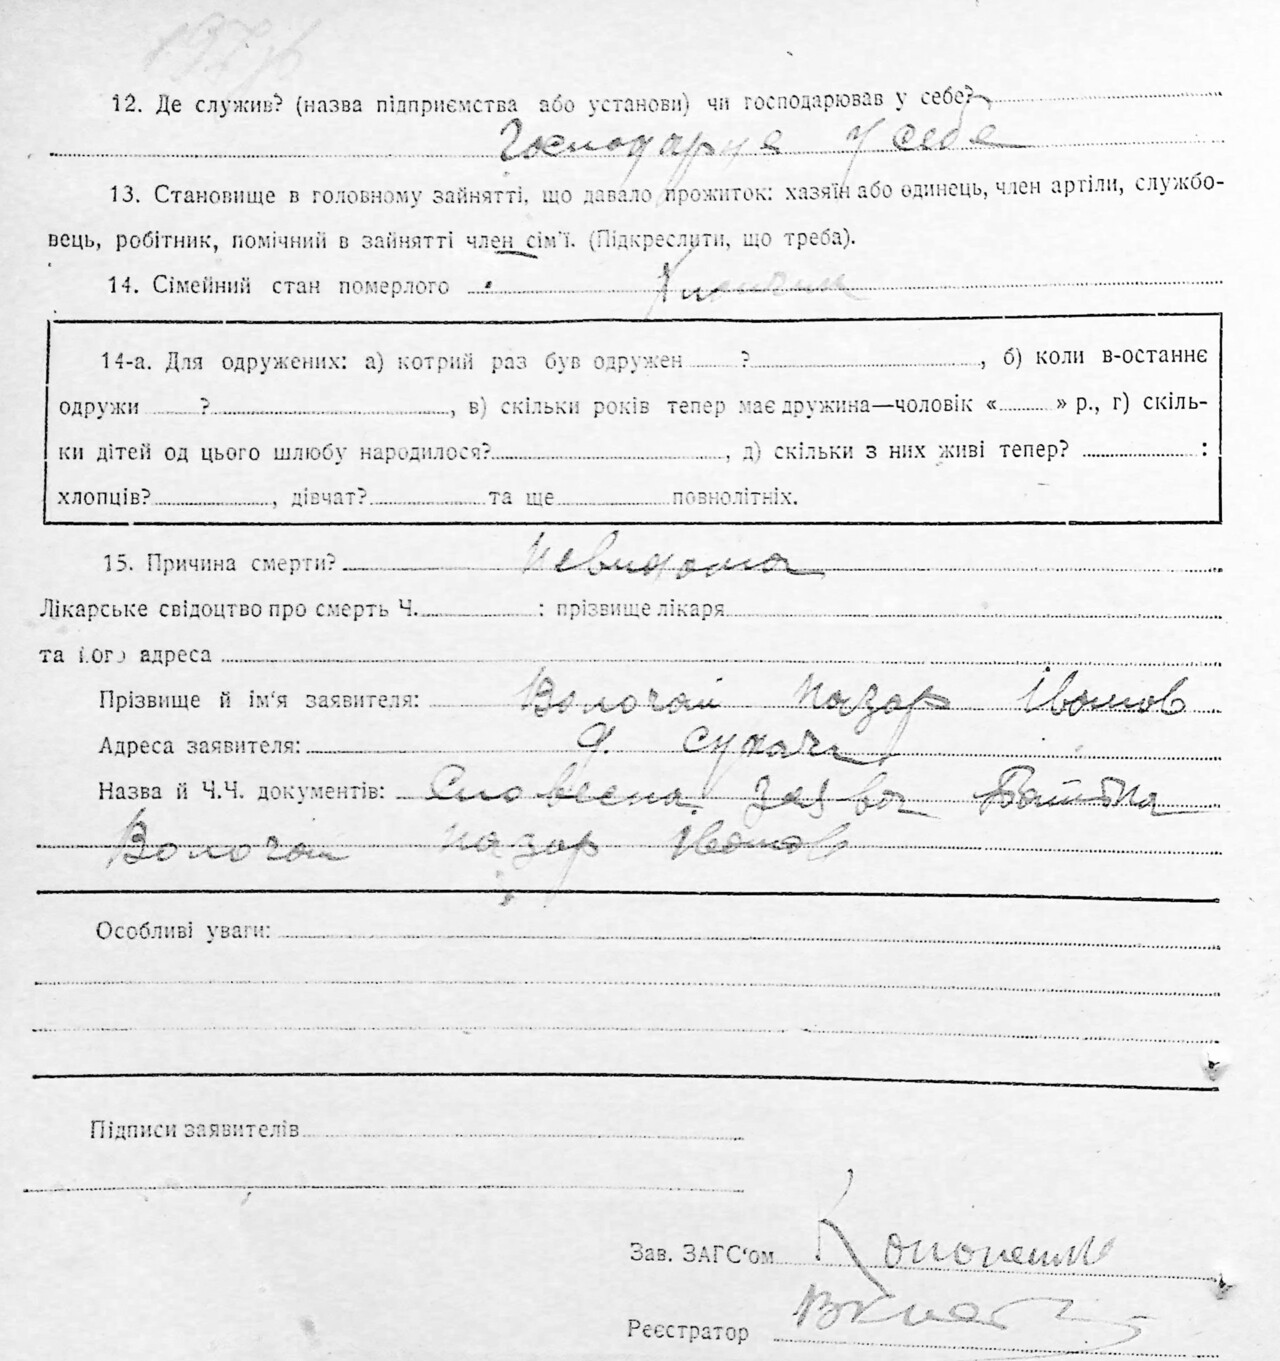 12. Де служив? (назва підприємства або установи) чи господарював у себе?
Господарює у себе
13. Становище в головному зайнятті, що давало прожиток: хазяїн або одинець, член артіли, службо-
вець, робітник, помічний в зайнятті член сім'ї. (Підкреслити, що треба).
14. Сімейний стан померлого
14-а. Для одружених: а) котрий раз був одружен ?, б) коли в-останнє
одружи ?, в) скільки років тепер має дружина—чоловік « » р., г) скіль-
ки дітей од цього шлюбу народилося?, д) скільки з них живі тепер? :
хлопців?, дівчат? та ще повнолітніх.
15. Причина смерти? Невидома
Лікарське свідоцтво про смерть Ч. : прізвище лікаря
та його адреса
Прізвище й ім'я заявителя: Волочай Назар Іванов
Адреса заявителя:
Назва й Ч.Ч. документів: Словесна заява батька
Волочай Назар Іванов
Особливі уваги:
Підписи заявителів
Зав. ЗАГС'ом Кононенко
Реєстратор